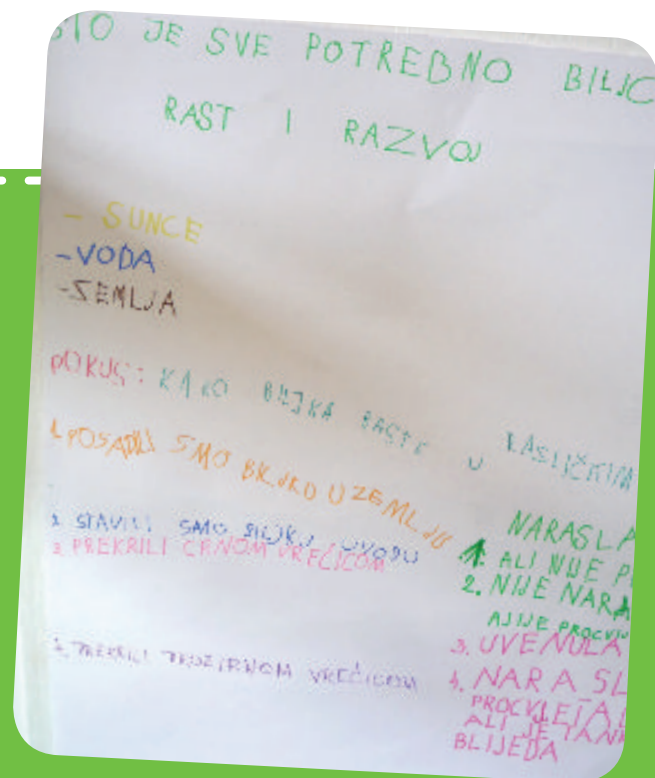 ŠTO JE SVE POTREBNO BILJC
RAST I RAZVOJ
- SUNCE
- VODA
- ZEMLJA
POKUS: KAKO BILJKA RASTE U RAZLIČKIM
1. POSADILI SMO U ZEMLJU
2. STAVILI SMO BILJKU U VODU
3. PREKRILI CRNOM VREĆICOM
4. PREKRILI PROZIRNOM VREĆICOM
NARASLA
1. ALI NIJE P
2. NIJE NARA
3. UVENULA
4. NARASL
PROCVJETALA
ALI JE TANK
BLIJEDA